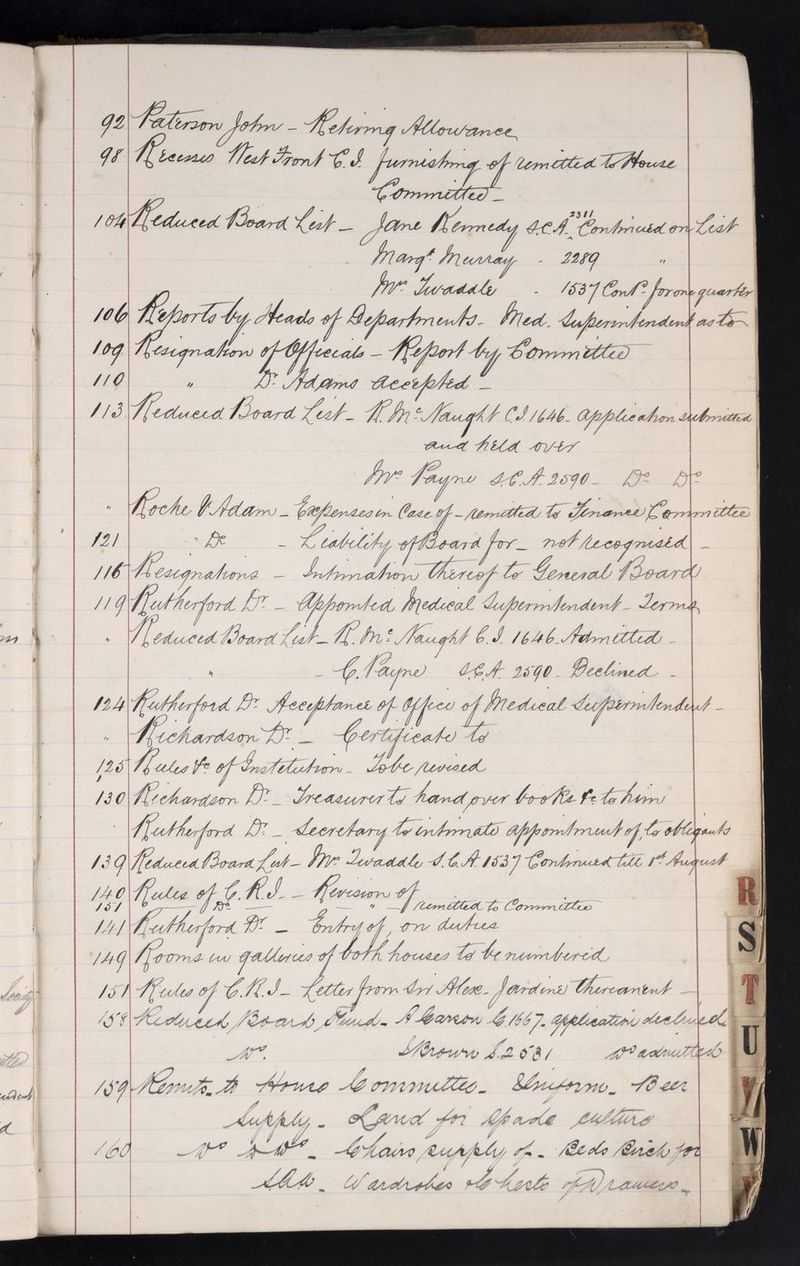 92 Paterson John – Retiring Allowance
98 Recesses West Front C.I. furnishing of remitted to House
Committee –
104 Reduced Board List – Jane Kennedy S.C.A. 2311 Continued on List
Margt. Murray - 2289 "
Mrs. Twaddle - 1537 Contd. for one quarter
106 Reports by Heads of Departments – Med. Superintendent as to
109 Resignation of Officials – Report by Committee
110 " Dr. Adams accepted –
113 Reduced Board List – R. McNaught C.I. 1646. Application submitted
and held over
Mrs Payne S.C.A. 2590 – Do Do
" Roche V. Adam – Expenses in Case of – remitted to Finance Committee
121 Do – Liability of Board for – not recognised –
116 Resignations – Intimation thereof to General Board
119 Rutherford Dr. – Appointed Medical Superintendent – Terms
" Reduced Board List – R. McNaught C.I. 1646. Admitted –
" – C. Payne S.C.A. 2590 – Declined –
124 Rutherford Dr. Acceptance of Office of Medical Superintendent –
" Richardson Dr. – Certificate to
125 Rules &c of Institution – To be revised
130 Richardson Dr. – Treasurer to hand over books &c to him
Rutherford Dr. – Secretary to intimate appointment of, to obligants
139 Reduced Board List – Mrs Twaddle S.C.A 1537 Continued till 1st August
140 Rules of C.R.I. – Revision of
151 Do – " – remitted to Committee
141 Rutherford Dr. – Entry of, on duties
149 Rooms in galleries of both houses to be numbered
151 Rules of C.R.I – Letter from Sir Alex. Jardine thereanent –
158 Reduced Board Fund – A Carson C 1667 – application declined
Do. I Brown S. 2531 Do admitted
159 Remits to House Committee – Uniform – Beer
Supply – Land for spade culture
160 Do Do – Chairs supply of – Beds Birch for
SCA – Wardrobes & Chests of Drawers –
R
S
T
U
V
W